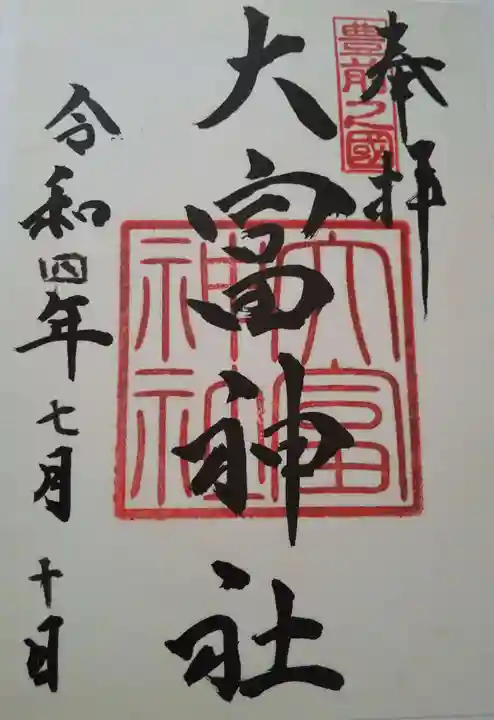 奉拝
豊前之國
大富神社
大富神社
令和四年七月十日